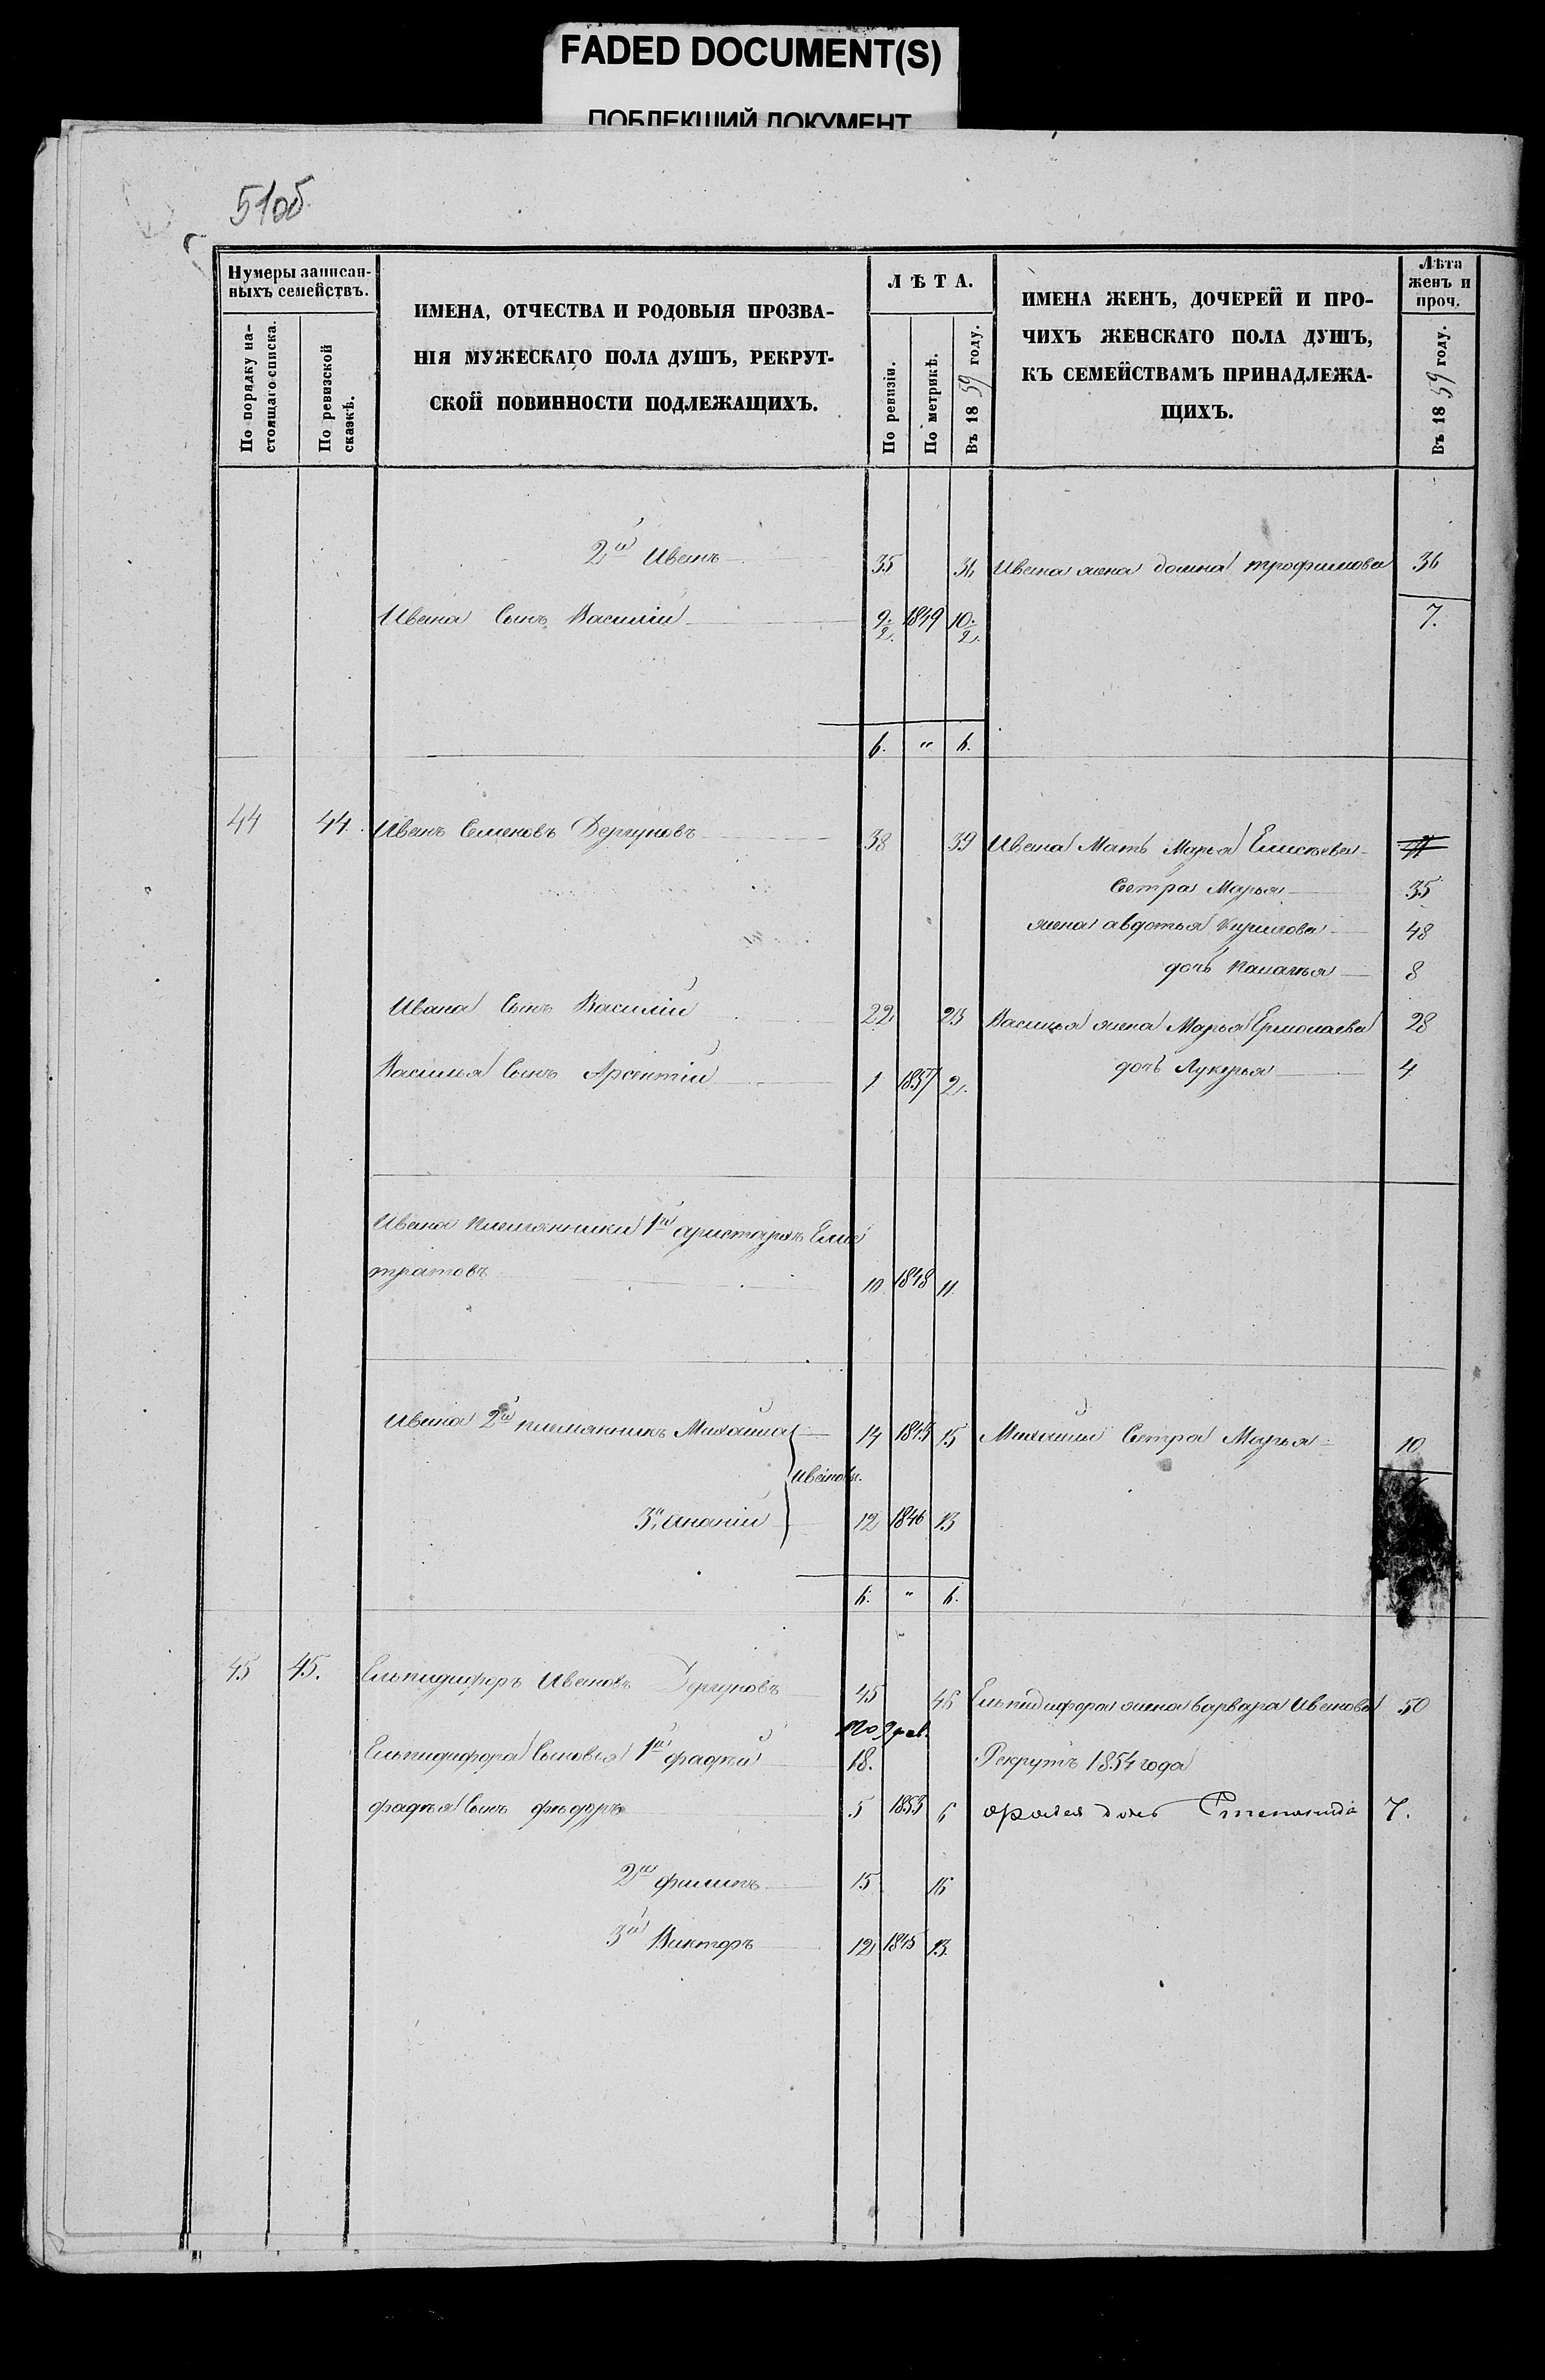 FADED DOCUMENT(S)
ПОБЛЕКШИЙ ДОКУМЕНТ
51об.
Нумеры записан-
ныхъ семействъ.
По порядку на-
стоящаго списка.
По ревизской
сказкѣ.
ИМЕНА, ОТЧЕСТВА И РОДОВЫЯ ПРОЗВА-
НІЯ МУЖЕСКАГО ПОЛА ДУШЪ, РЕКРУТ-
СКОЙ ПОВИННОСТИ ПОДЛЕЖАЩИХЪ.
ЛѢТА.
По ревизіи.
По метрикѣ.
Въ 1859 году.
ИМЕНА ЖЕНЪ, ДОЧЕРЕЙ И ПРО-
ЧИХЪ ЖЕНСКАГО ПОЛА ДУШЪ,
КЪ СЕМЕЙСТВАМЪ ПРИНАДЛЕЖА-
ЩИХЪ.
Лѣта
женъ и
проч.
Въ 1859 году.
2й Иванъ 35 36 Ивана жена домна трофимова 36
Ивана Сынъ Василій 9 1/2 1849 10 1/2 7.
6. " 6.
44 44. Иванъ Семеновъ Дергуновъ 38 39 Ивана Мать Марья Елисѣева
Сестра Марья 35
жена авдотья Кирилова 48
дочь Палагѣя 8
Ивана Сынъ Василій 22 23 Василья жена Марья Ермолаева 28
Василья Сынъ Арсентій 1 1857 2. дочь Лукерья 4
Ивана племянники 1й аристархъ Елис
тратовъ 10 1848 11
Ивана 2й племянникъ Михаила 14 1845 15 Михаила Сестра Марья 10
Ивановы.
3й Ананій 12 1846 13
6. " 6.
45 45. Ельпидифоръ Ивановъ Дергуновъ 45 46 Ельпидифора жена Варвара Иванова 50
Ельпидифора Сыновья 1й фадѣй 18. Рекрутъ 1854 года
фадѣя Сынъ фѣдоръ 5 1853 6 фадея дочь Степанида 7.
2й филипъ 15 16
3й Викторъ 12 1845 13.